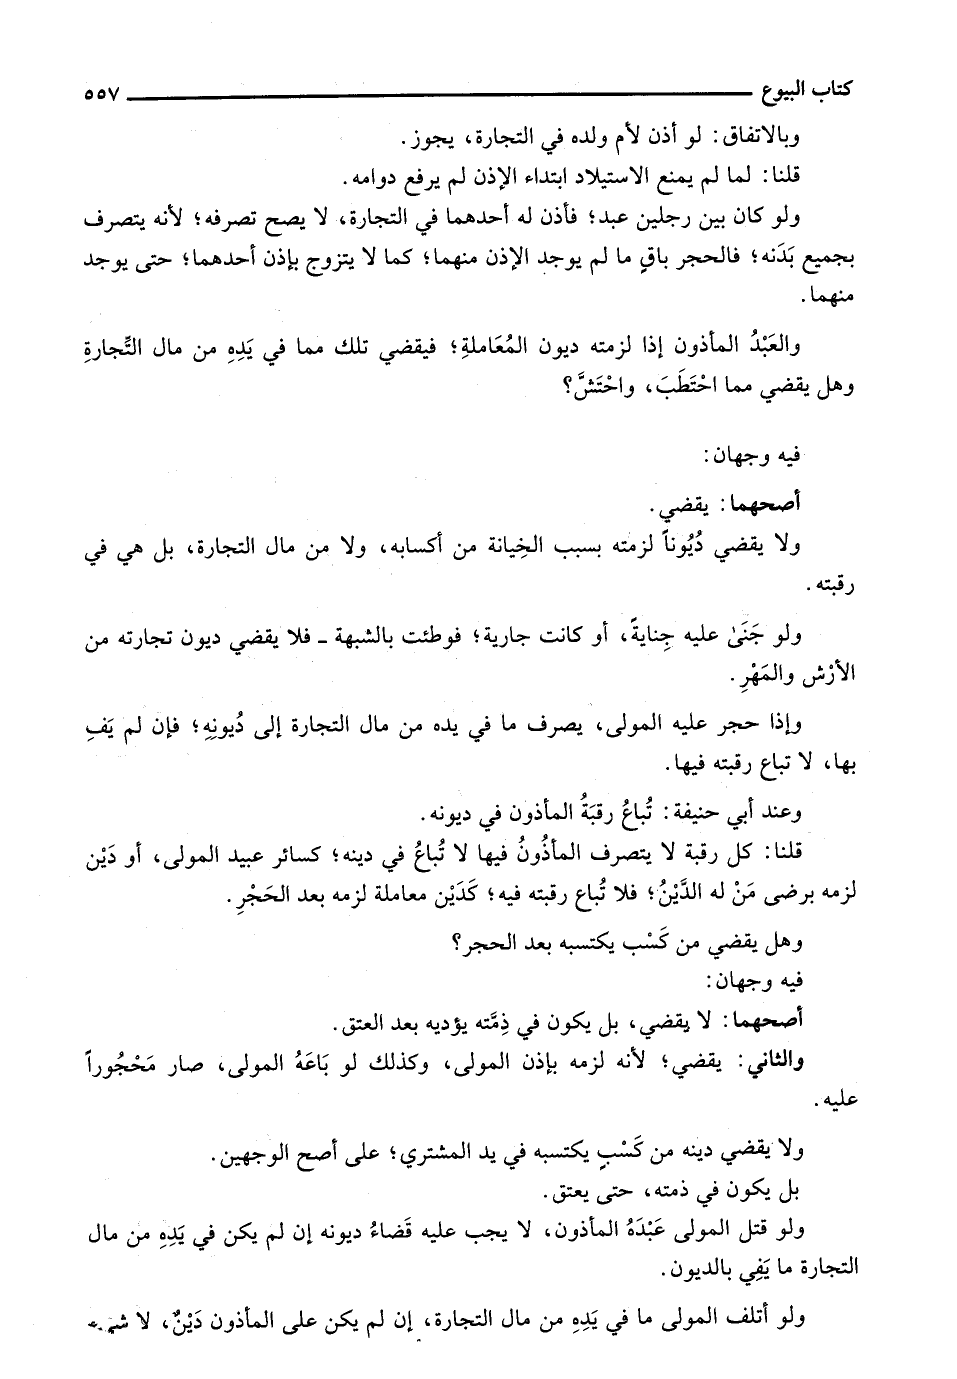 كتاب البيوع ٥٥٧
وبالاتفاق: لو أذن لأم ولده في التجارة، يجوز.
قلنا: لما لم يمنع الاستيلاد ابتداء الإذن لم يرفع دوامه.
ولو كان بين رجلين عبد؛ فأذن له أحدهما في التجارة، لا يصح تصرفه؛ لأنه يتصرف
بجميع بَدَنه؛ فالحجر باقٍ ما لم يوجد الإذن منهما؛ كما لا يتزوج بإذن أحدهما؛ حتى يوجد
منهما.
والعَبْدُ المأذون إذا لزمته ديون المُعَاملةِ؛ فيقضي تلك مما في يَدِهِ من مال التِّجارةِ
وهل يقضي مما احْتَطَبَ، واحْتَشَّ؟
فيه وجهان:
أصحهما: يقضي.
ولا يقضي دُيُوناً لزمته بسبب الخِيانة من أكسابه، ولا من مال التجارة، بل هي في
رقبته.
ولو جَنَىٰ عليه جِنايةً، أو كانت جارية؛ فوطئت بالشبهة ـ فلا يقضي ديون تجارته من
الأرْش والمَهْرِ.
وإذا حجر عليه المولى، يصرف ما في يده من مال التجارة إلى دُيونِهِ؛ فإن لم يَفِ
بها، لا تباع رقبته فيها.
وعند أبي حنيفة: تُباعُ رقبَةُ المأذون في ديونه.
قلنا: كل رقبة لا يتصرف المأذُونُ فيها لا تُباعُ في دينه؛ كسائر عبيد المولى، أو دَيْن
لزمه برضى مَنْ له الدَّيْنُ؛ فلا تُباع رقبته فيه؛ كَدَيْن معاملة لزمه بعد الحَجْرِ.
وهل يقضي من كَسْب يكتسبه بعد الحجر؟
فيه وجهان:
أصحهما: لا يقضي، بل يكون في ذِمَّته يؤديه بعد العتق.
والثاني: يقضي؛ لأنه لزمه بإذن المولى، وكذلك لو بَاعَهُ المولى، صار مَحْجُوراً
عليه.
ولا يقضي دينه من كَسْبٍ يكتسبه في يد المشتري؛ على أصح الوجهين.
بل يكون في ذمته، حتى يعتق.
ولو قتل المولى عَبْدَهُ المأذون، لا يجب عليه قَضاءُ ديونه إن لم يكن في يَدِهِ من مال
التجارة ما يَفِي بالديون.
ولو أتلف المولى ما في يَدِهِ من مال التجارة، إن لم يكن على المأذون دَيْنٌ، لا شيء